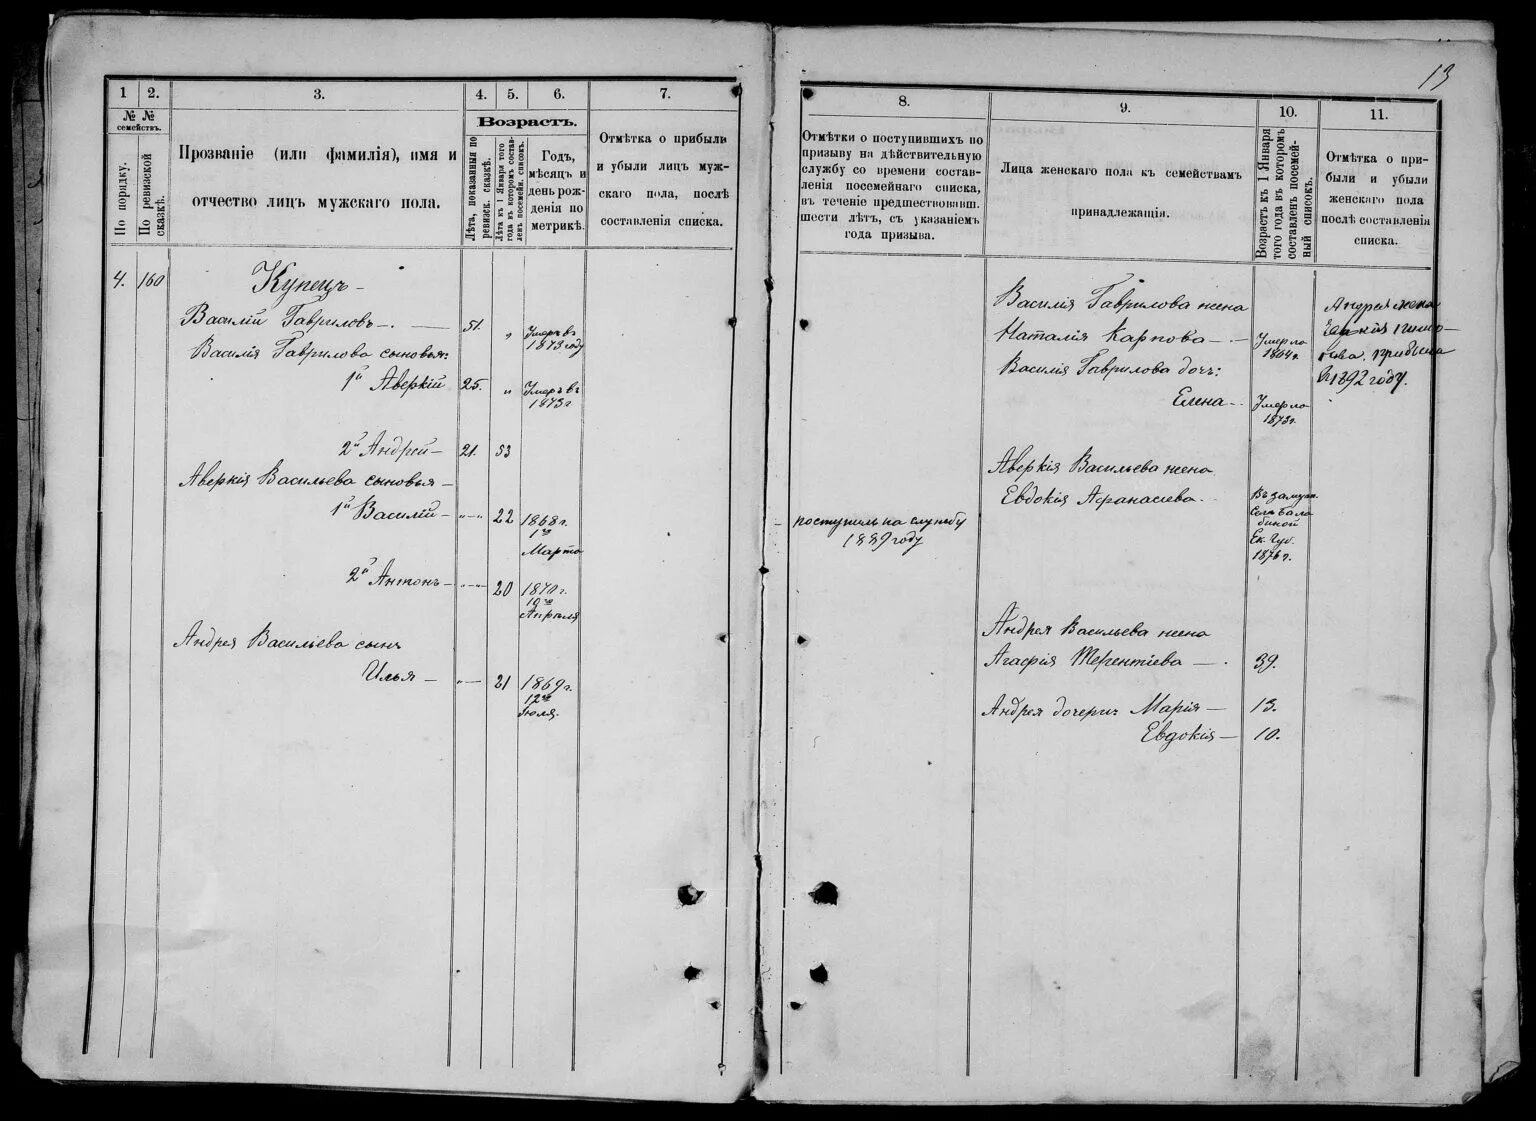 13
1
2.
3.
4.
5.
6.
7.
№ №
семействъ.
По порядку.
По ревизской
сказкѣ.
Прозваніе (или фамилія), имя и
отчество лицъ мужскаго пола.
Возрастъ.
Лѣта, показанныя по
ревизск. сказкѣ.
Лѣта къ 1 Января того
года въ которомъ состав-
ленъ посемейн. списокъ.
Годъ,
мѣсяцъ и
день рож-
денія по
метрикѣ.
Отмѣтка о прибыли
и убыли лицъ муж-
скаго пола, послѣ
составленія списка.
4. 160
Купецъ —
Василій Гавриловъ — 51. „ Умеръ въ
1873 году
Василія Гаврилова сыновья:
1й Аверкій 25. „ Умеръ въ
1873 г
2й Андрей — 21. 53
Аверкія Васильева сыновья —
1й Василій — „ — „ 22 1868 г.
1го
Марта
2й Антонъ — „ — „ 20 1870 г.
10го
Апрѣля
Андрея Васильева сынъ
Илья — „ — 21 1869 г.
12го
Іюля.
8.
9.
10.
11.
Отмѣтки о поступившихъ по
призыву на дѣйствительную
службу со времени состав-
ленія посемейнаго списка,
въ теченіе предшествовавш.
шести лѣтъ, съ указаніемъ
года призыва.
Лица женскаго пола къ семействамъ
принадлежащія.
Возрастъ къ 1 Января
того года въ которомъ
составленъ посемей-
ный списокъ.
Отмѣтка о при-
были и убыли
женскаго пола
послѣ составленія
списка.
Василія Гаврилова жена
Наталія Карпова — Умерла
1864 г.
Василія Гаврилова дочь:
Елена — Умерла
1873 г.
Андрея жена
прибыла
въ 1892 году.
Аверкія Васильева жена
Евдокія Афанасіева — Въ замуж.
Сел. Бала
биной
Ек. Губ.
1876 г.
поступилъ на службу
1889 году
Андрея Васильева жена
Агафія Терентіева — 39.
Андрея дочери: Марія — 13.
Евдокія — 10.